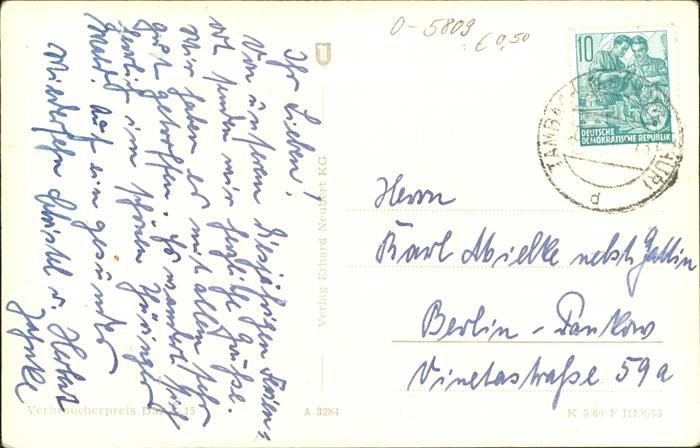 Ihr Lieben!
Von unserem diesjährigen Ferien=
ort senden wir herzliche Grüße.
Wir haben es mit allem sehr
gut getroffen. Es wandert sich
herrlich im schönen Thüringer
Wald. Auf ein gesundes
Wiedersehn Christel u. Herbert
Jahnke
Verlag Erhard Neubert KG
0-5809
€ 0,50
10
DEUTSCHE
DEMOKRATISCHE REPUBLIK
TAMBACH
d
Herrn
Karl Mielke nebst Gattin
Berlin-Pankow
Vinetastraße 59a
Verbraucherpreis DM 0,15
A 3284
K 5/60 F III/6/75